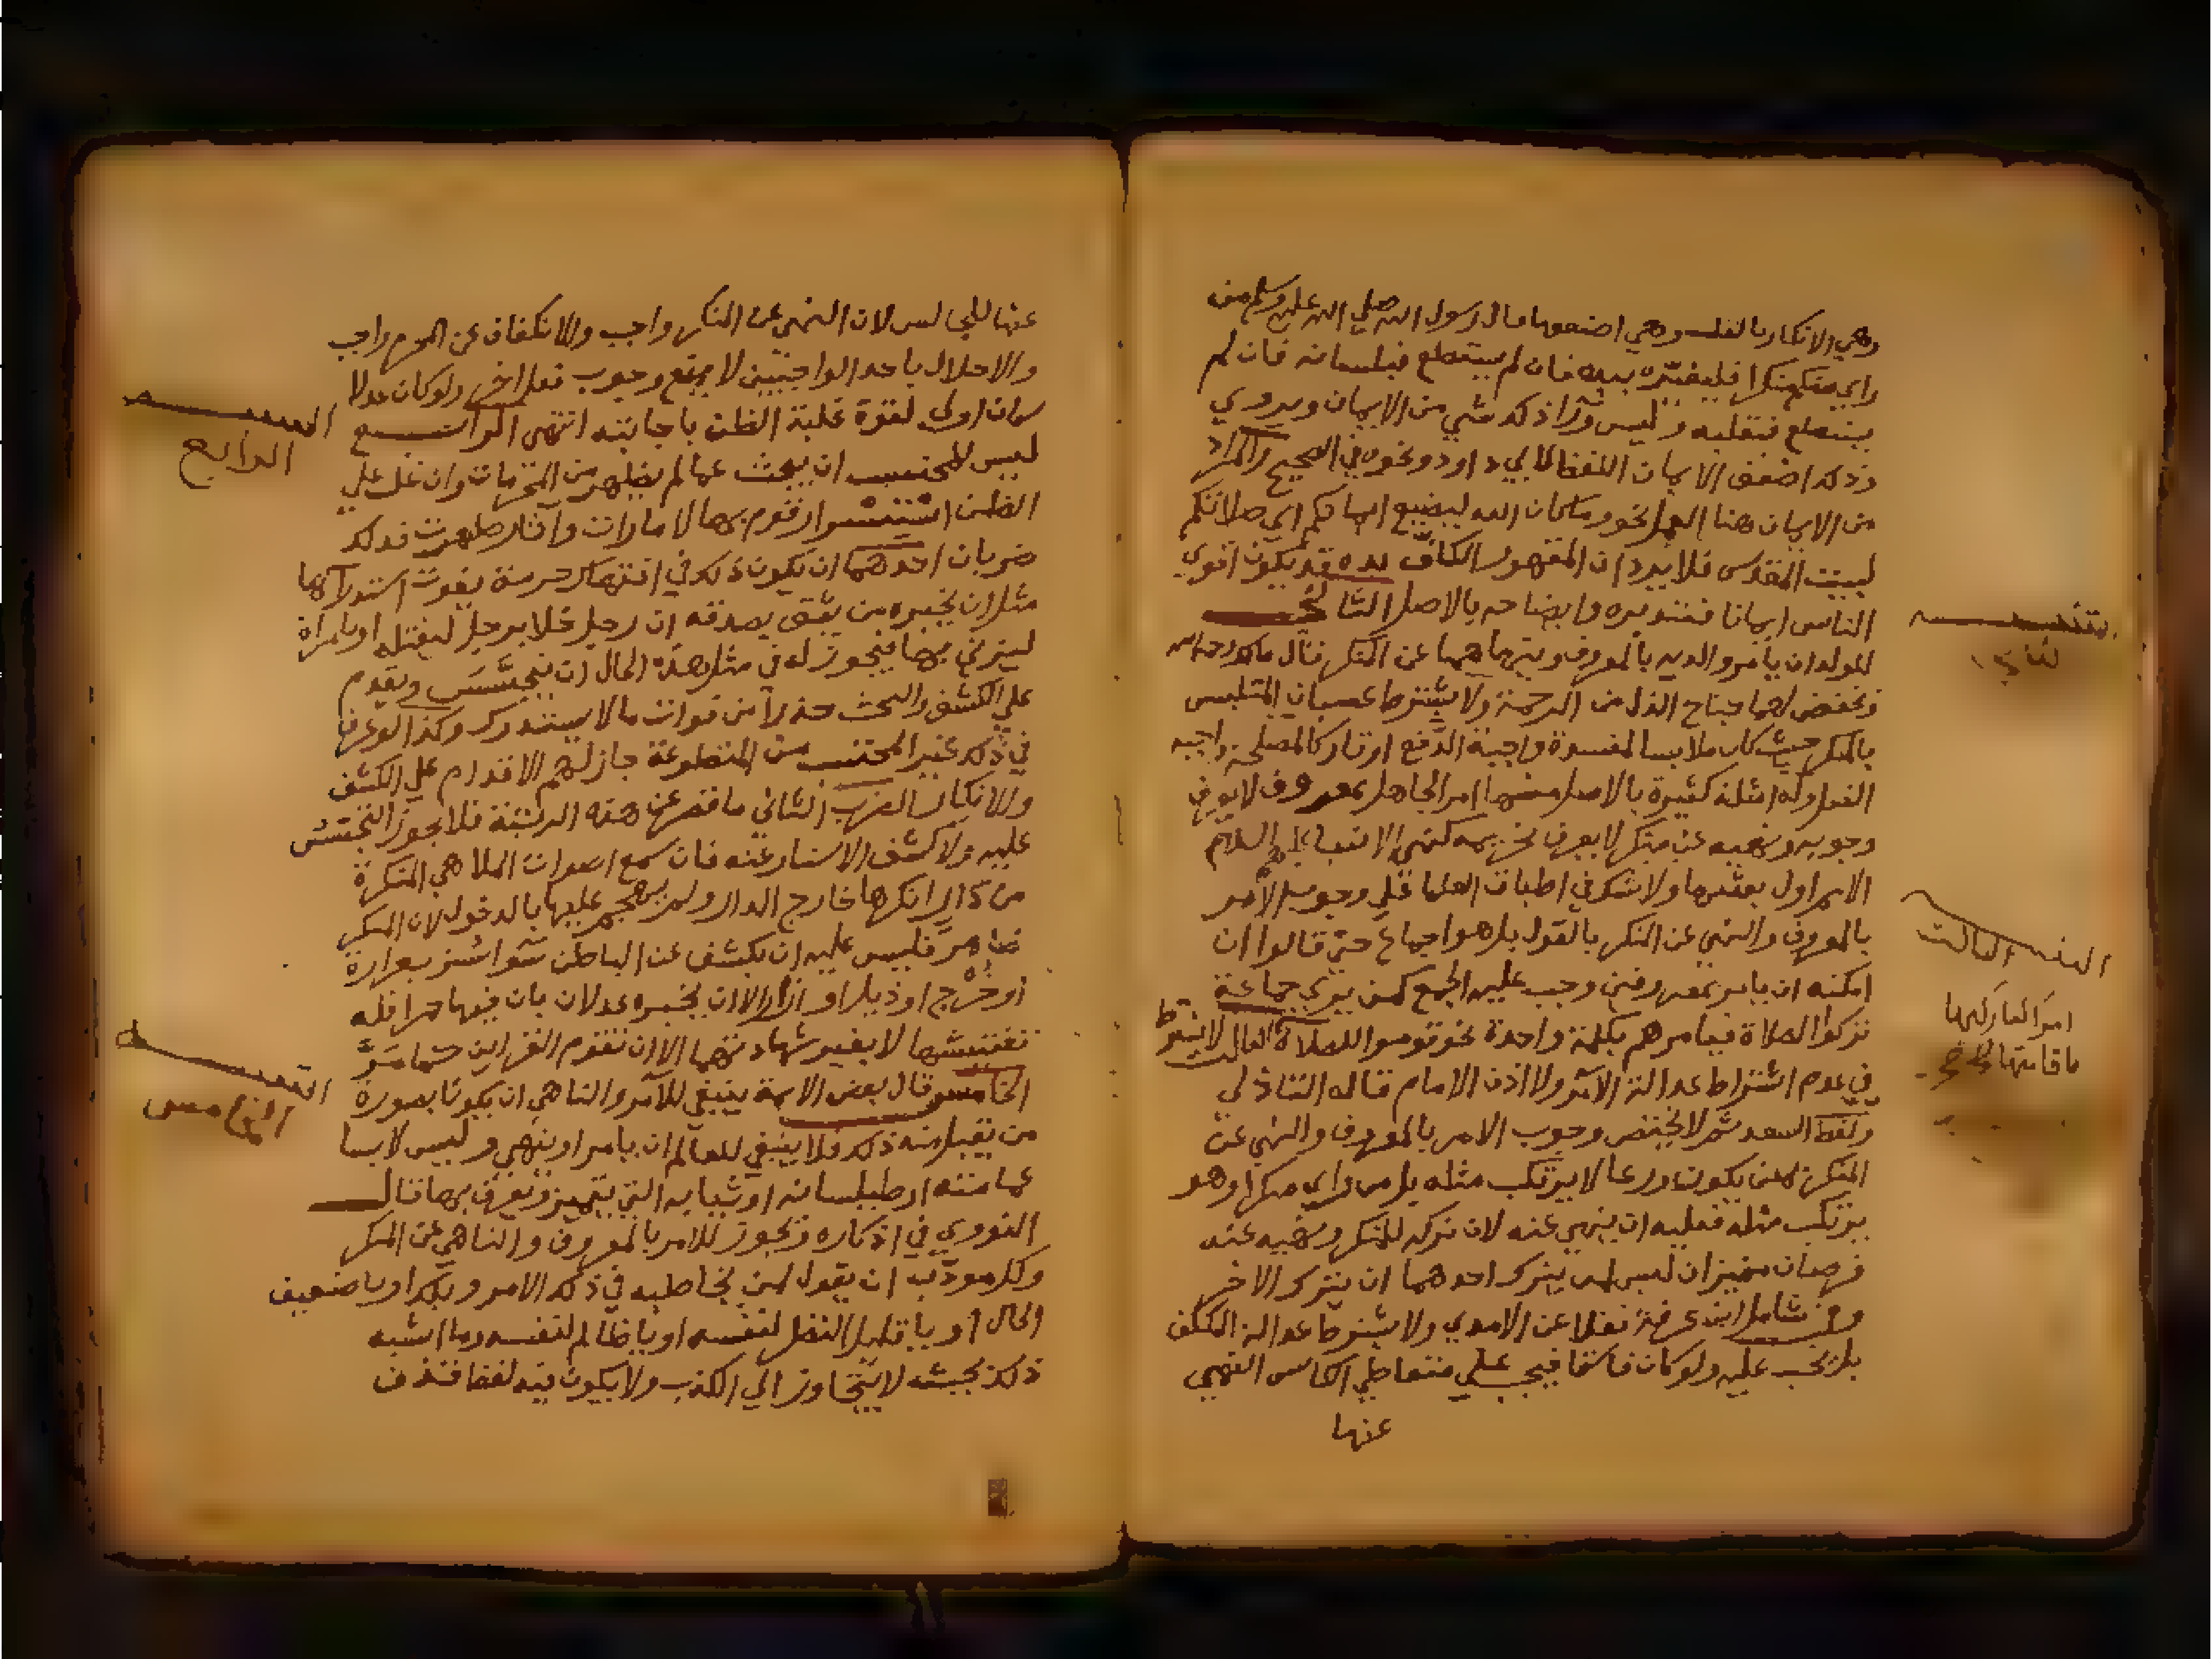 وهي الانكار بالقلب وهي اضعفها قال رسول الله صلي الله عليه وسلم من
راي منكم منكرا فليغيره بيده فان لم يستطع فبلسانه فان لم
يستطع فبقلبه وليس ورآ ذلك شي من الايمان ويروي
وذلك اضعف الايمان اللفظ لابي داود ونحوه في الصحيح والمراد
من الايمان هنا العمل نحو وماكان الله ليضيع ايمانكم اي صلاتكم
لبيت المقدس فلا يرد ان المقهور الكاف يده قد يكون اقوي
الناس ايمانا فتدبره وايضاحه بالاصل الثاني
للولد ان يامر والديه بالمعروف وينهاهما عن المنكر قال مالك رحمه الله
ويخفض لهما جناح الذل من الرحمة ولا يشترط عصيان المتلبس
بالمنكر حيث كان ملابسا لمفسدة واجبة الدفع او تاركا لمصلحة واجبة
الفعل وله امثلة كثيرة بالاصل منها امر الجاهل بمعروف لا يعرف
وجوبه ونهيه عن منكر لا يعرف تحريمه كنهي الانبياء عليهم السلام
الامم اول بعثتها ولا شك في اطباق العلما علي وجوب الامر
بالمعروف والنهي عن المنكر بالقول بل هو اجماع حتي قالوا ان
امكنه ان يامر بمعروفين وجب عليه الجمع كمن يري جماعة
تركوا الصلاة فيامرهم بكلمة واحدة نحو قوموا للصلاة الثالث لا يشترط
في عدم اشتراط عدالة الآمر ولا اذن الامام قاله الشاذلي
ولفظ السعد ثم لا يختص وجوب الامر بالمعروف والنهي عن
المنكر بمن يكون ورعا لا يرتكب مثله بل من راي منكرا وهو
يرتكب مثله فعليه ان ينهي عنه لان تركه للمنكر ونهيه عنه
فرضان متميزان ليس لمن يترك احدهما ان يترك الاخر
وفي شامل ابن عرفة نقلا عن الامدي ولا يشترط عدالة المكلف
بل يجب عليه ولو كان فاسقا فيجب علي متعاطي الكاس النهي
عنها
الثاني
التنبيه الثالث
عنها للجالس لان النهي عن المنكر واجب والانكفاف عن المحرم واجب
والاخلال باحد الواجبين لا يمنع وجوب فعل الاخر ولو كان عدلا
كان اولي لقوة غلبة الظن باجابته انتهي الرابع
ليس للمحتسب ان يبحث عما لم يظهر من المحرمات وان غلب علي
الظن استتسرار قوم بها لامارات وآثار ظهرت فذلك
ضربان احدهما ان يكون ذلك في انتهاك حرمة يفوت استدراكها
مثل ان يخبره من يثق بصدقه ان رجل خلا برجل ليقتله او بامراة
ليزني بها فيجوز له في مثل هذه الحال ان يتجسس ويقدم
علي الكشف والبحث حذرا من فوات ما لا يستدرك وكذا لو عرف
في ذلك غير المحتسب من المتطوعة جاز لهم الاقدام علي الكشف
والانكار الضرب الثاني ما قصر عن هذه الرتبة فلا يجوز التجسس
عليه ولا كشف الاستار عنه فان سمع اصوات الملاهي المنكرة
من دار انكرها خارج الدار ولم يهجم عليها بالدخول لان المنكر
ظاهر فليس عليه ان يكشف عن الباطن
الا ان يخبره عدلان بان فيها حراما فله
تفتيشها لا بغير شهادتهما الا ان تقوم القراين
الخامس قال بعض الايمة ينبغي للآمر والناهي ان يكونا بصورة
من تقبل منه ذلك فلا ينبغي للعالم ان يامر او ينهي وليس لابسا
عمامته او طيلسانه او ثيابه التي يتميز ويعرف بها قال
النووي في اذكاره ويجوز للامر بالمعروف والناهي عن المنكر
وكل مودب ان يقول لمن يخاطبه في ذلك الامر ويلك او يا ضعيف
الحال او يا قليل النظر لنفسه او يا ظالم لنفسه وما اشبه
ذلك بحيث لا يتجاوز الي الكذب ولا يكون فيه لفظ قذف
التنبيه
الرابع
التنبيه
الخامس